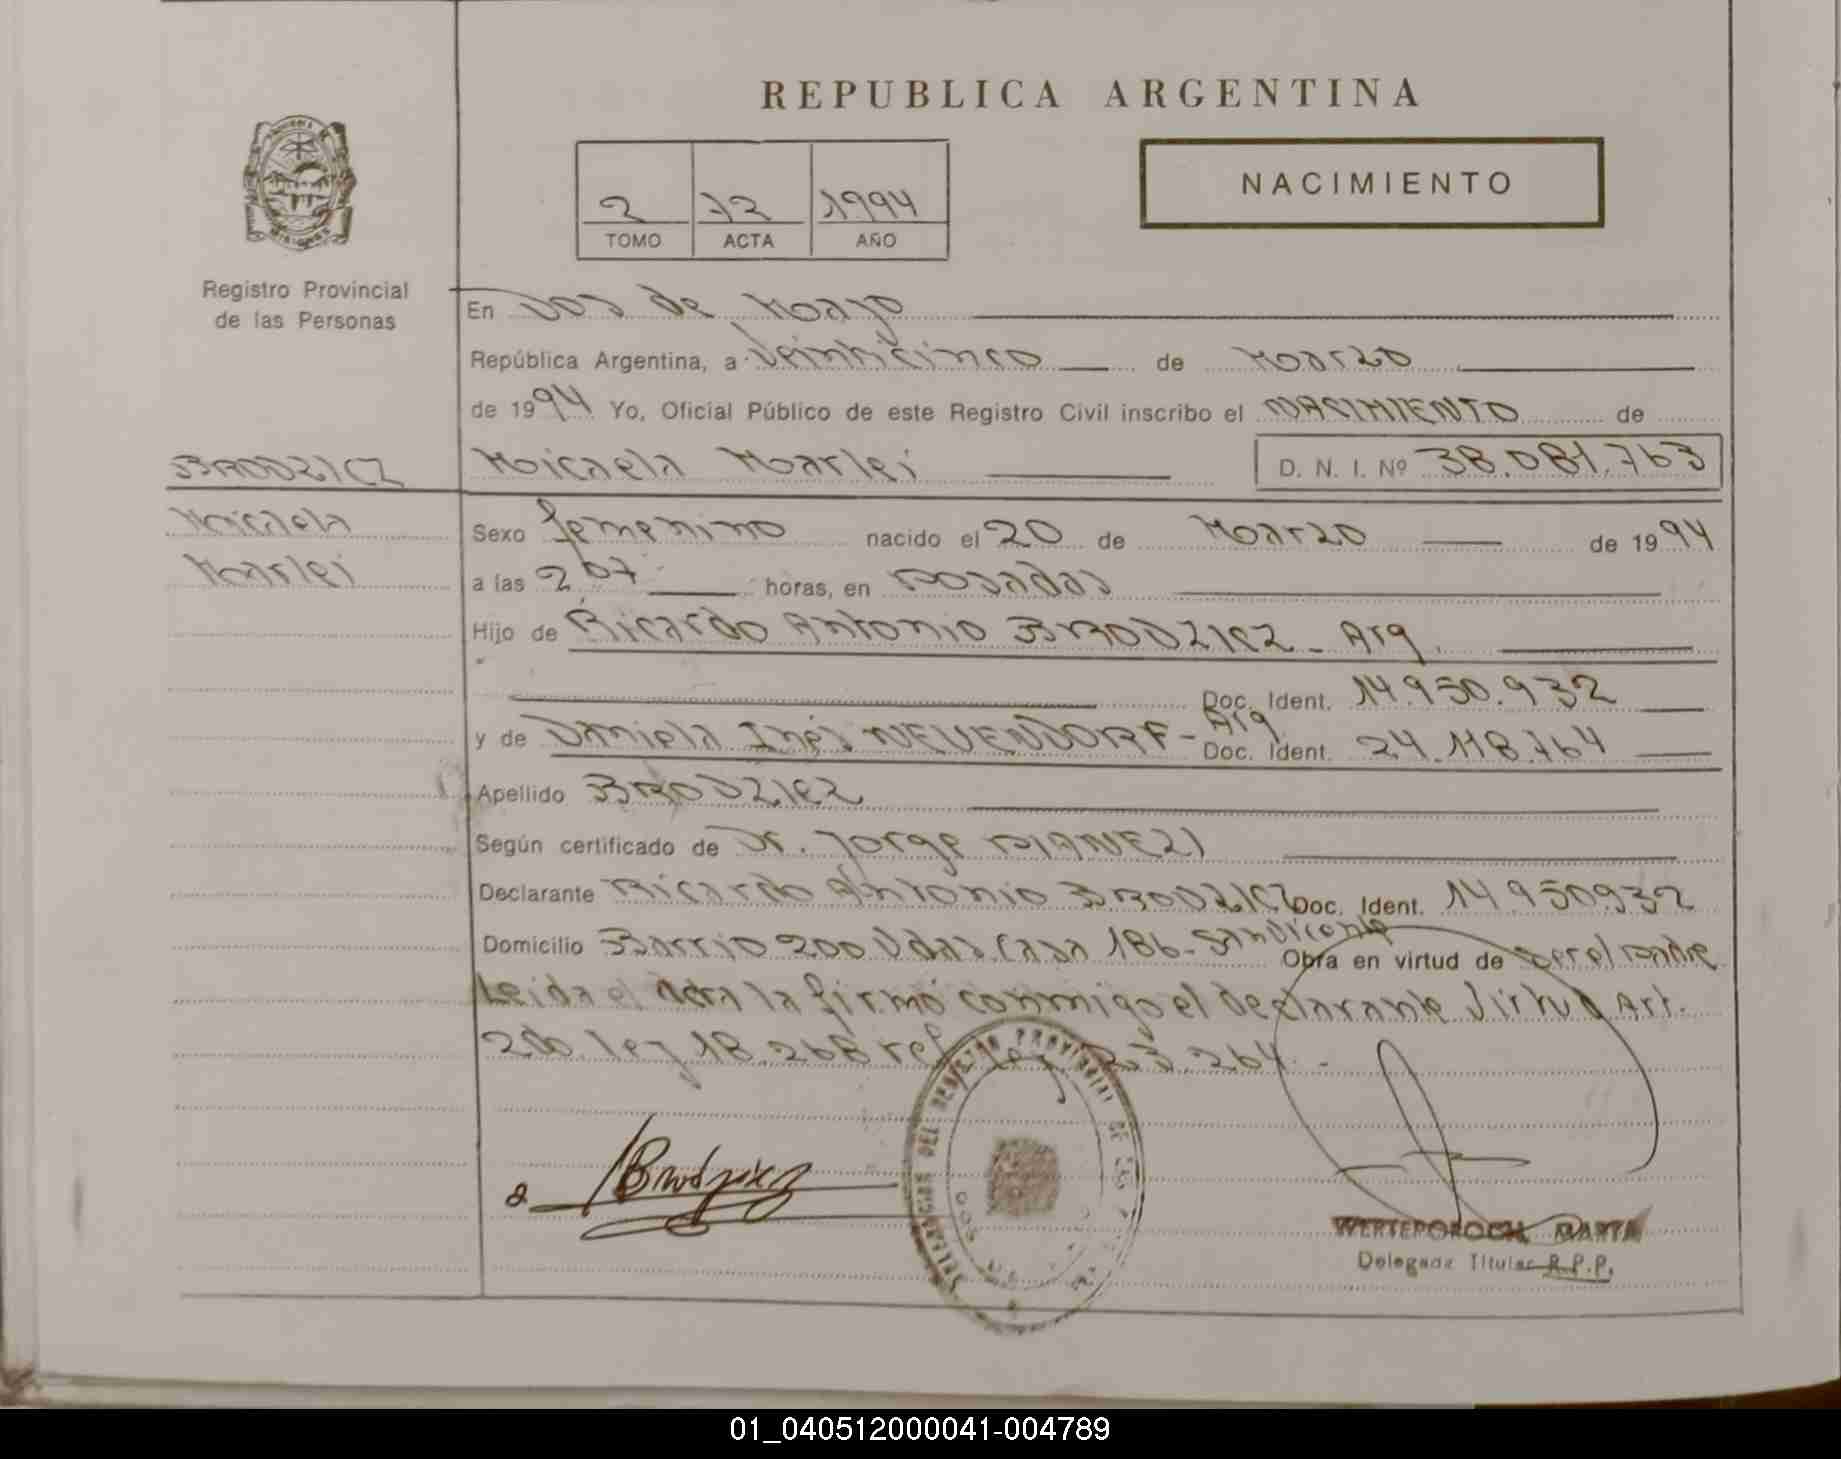 REPUBLICA ARGENTINA
NACIMIENTO
2 72 1994
TOMO ACTA AÑO
Registro Provincial
de las Personas
En Dos de Mayo
República Argentina, a Veinticinco de Marzo
de 1994 Yo, Oficial Público de este Registro Civil inscribo el NACIMIENTO de
BRODZICZ Micaela Marlei D. N. I. Nº 38.081.763
Micaela
Marlei
Sexo femenino nacido el 20 de Marzo de 1994
a las 2 07 horas, en Posadas
Hijo de Ricardo Antonio BRODZICZ - Arg.
Doc. Ident. 14.950.932
y de Daniela Inés NEUENDORF - Arg Doc. Ident. 24.118.764
Apellido BRODZICZ
Según certificado de Dr. Jorge
Declarante Ricardo Antonio BRODZICZ Doc. Ident. 14950932
Domicilio Barrio 200 Vdas. Casa 186 - San Vicente Obra en virtud de ser el padre
Leida el Acta la firmó conmigo el declarante Virtud Art.
ley 18.268 ref. ley 23.264.-
Brodzicz
DEL REGISTRO PROVINCIAL DE LAS
DOS DE
WERTEPOROCH MARTA
Delegada Titular R.P.P.
01_040512000041-004789